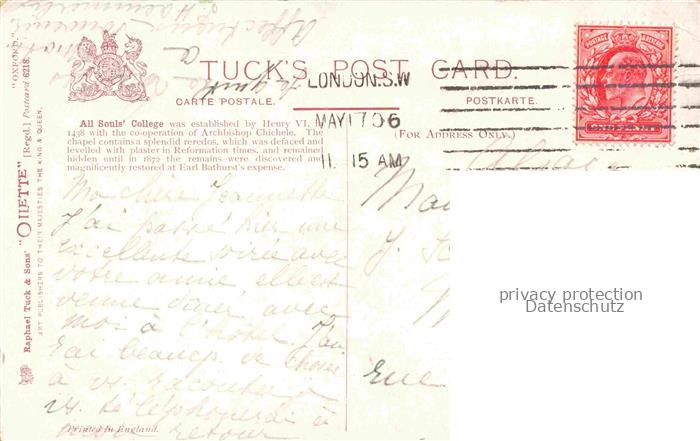 TUCK'S POST CARD.
CARTE POSTALE.
POSTKARTE.
LONDON.S.W
MAY 17 06
11. 15 AM
POSTAGE & REVENUE
"OXFORD."
Raphael Tuck & Sons' "OILETTE" [Regd.] Postcard 6218.
ART PUBLISHERS TO THEIR MAJESTIES THE KING & QUEEN.
All Souls' College was established by Henry VI.
1438 with the co-operation of Archbishop Chichele. The
chapel contains a splendid reredos, which was defaced and
levelled with plaster in Reformation times, and remained
hidden until in 1872 the remains were discovered and
magnificently restored at Earl Bathurst's expense.
(FOR ADDRESS ONLY.)
Ma chère Jeannette
J'ai passé hier une
excellente soirée avec
votre amie elle est
venue dîner avec
moi à l'hôtel. J'au
rai beaucp. de choses
à vs. raconter
vs. téléphonerai à
mon retour
Printed in England.
Rue
privacy protection
Datenschutz